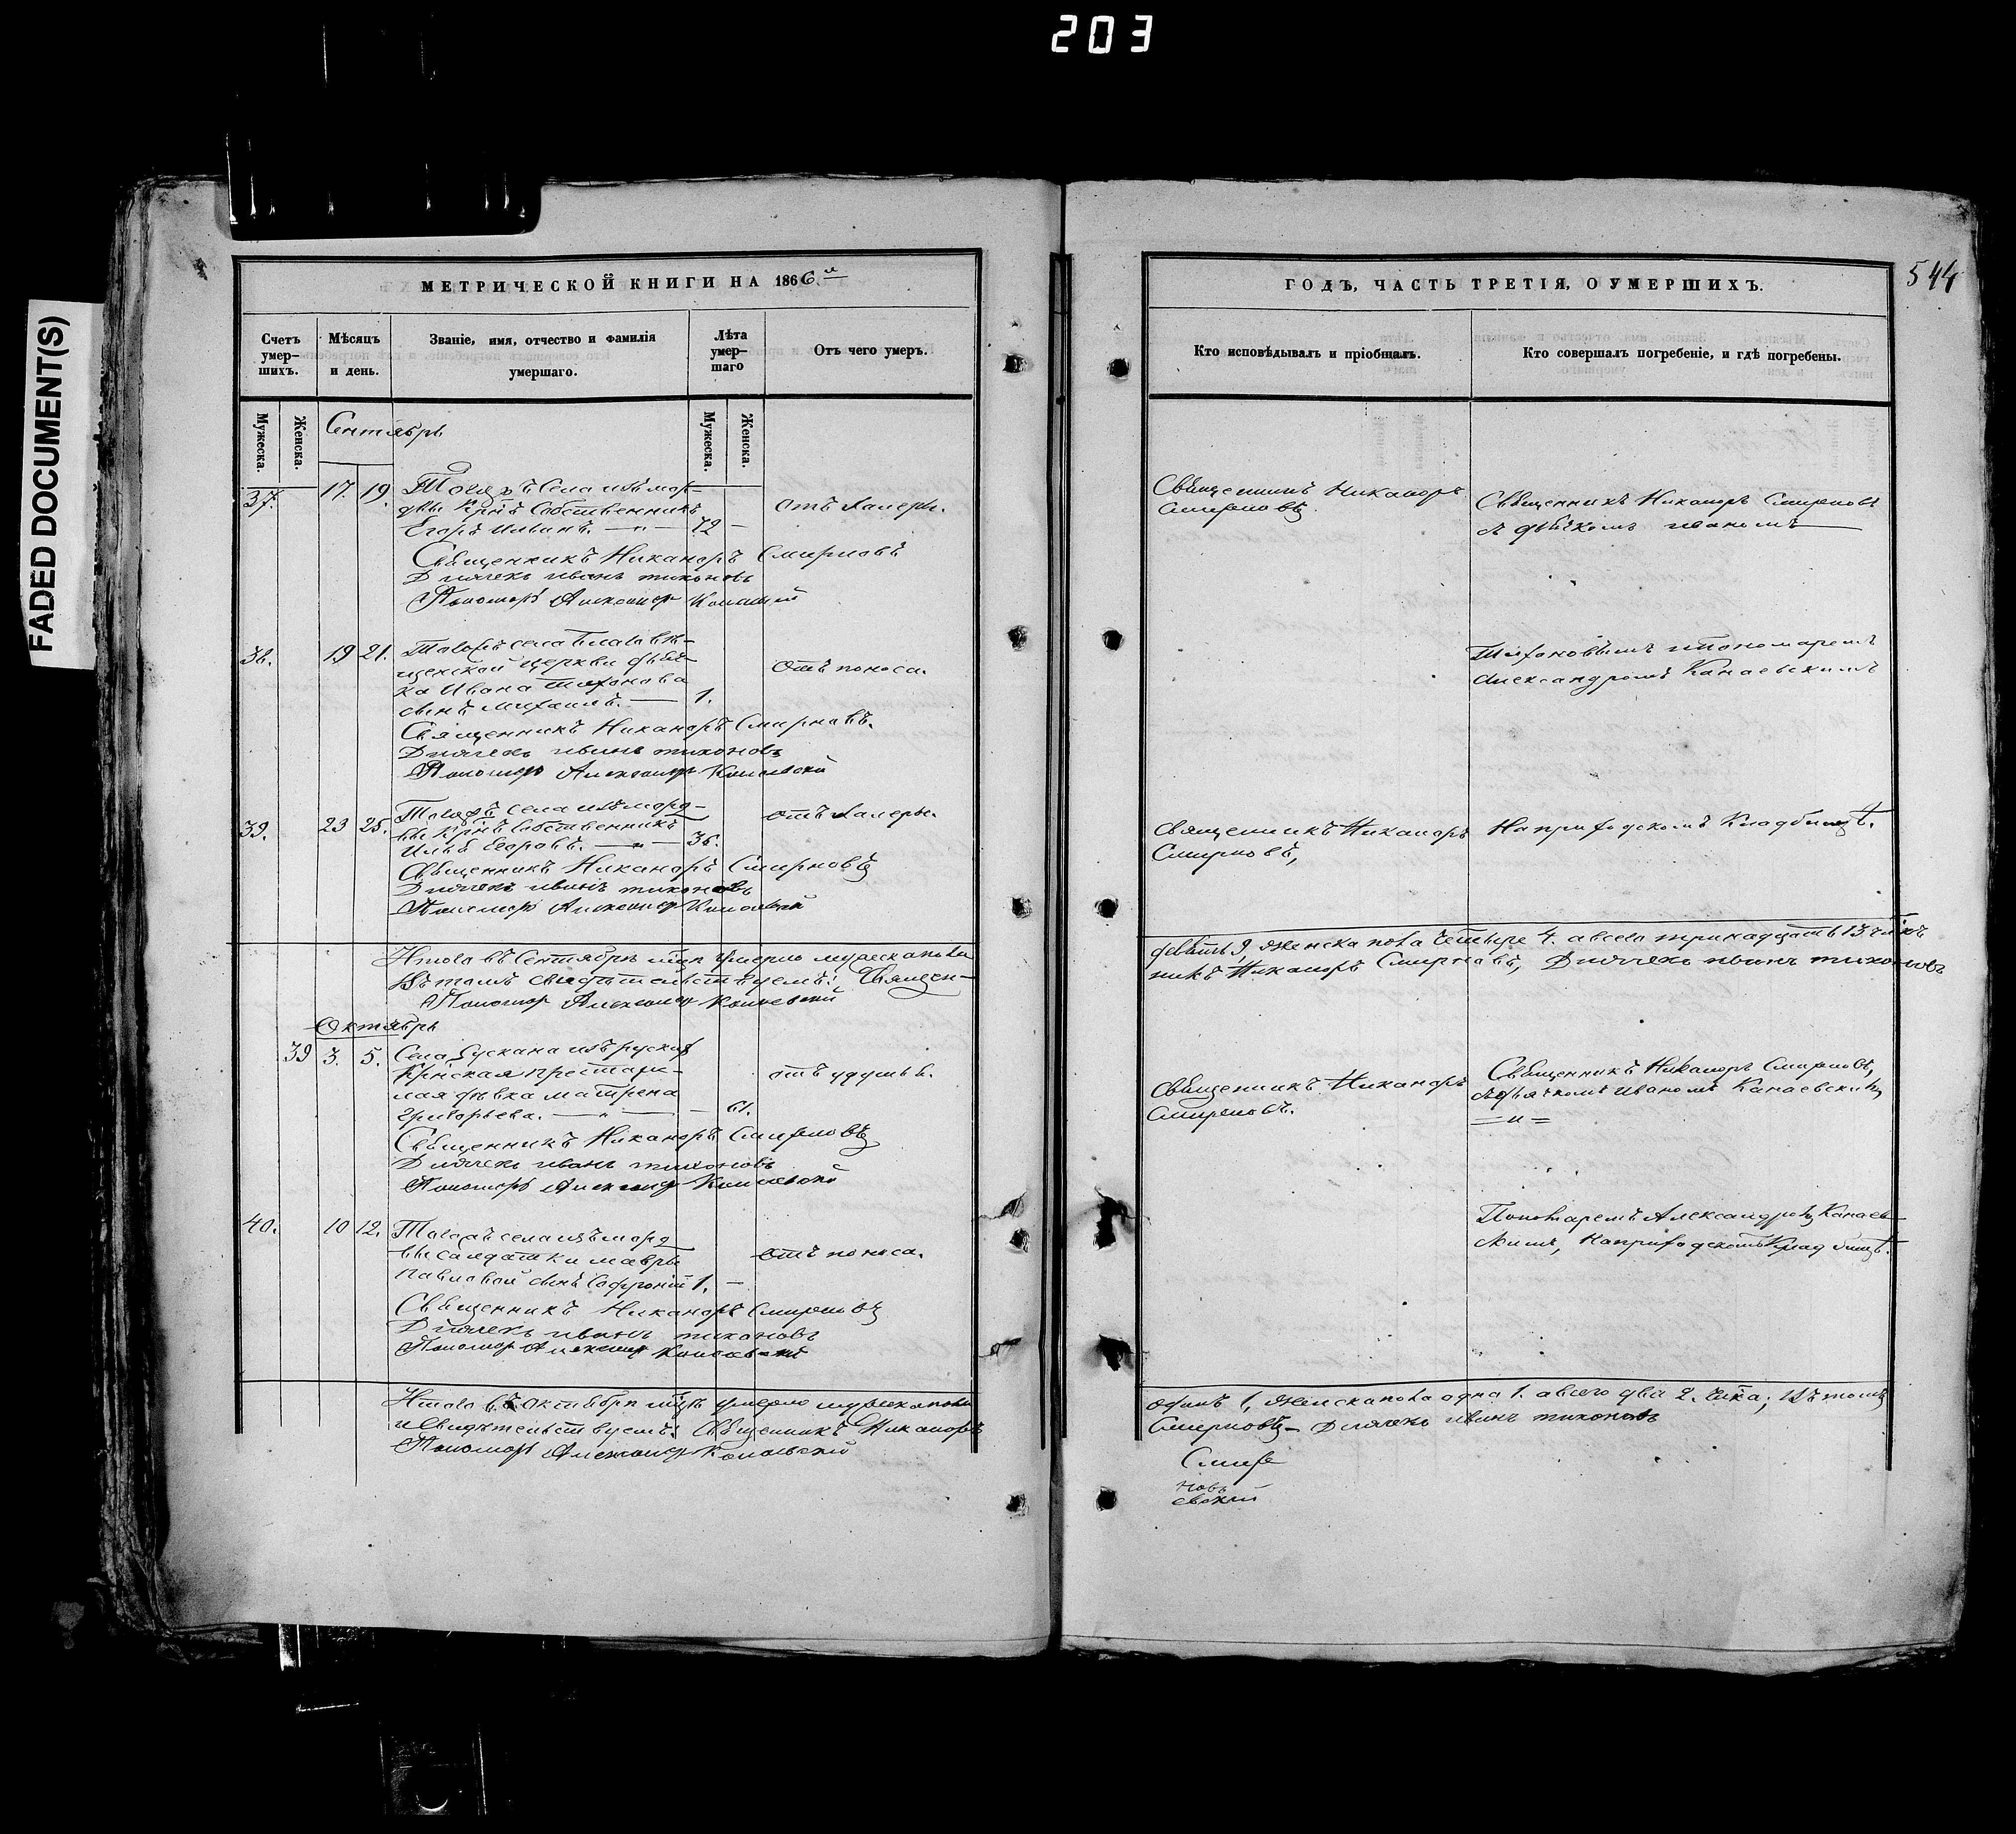 203
FADED DOCUMENT(S)
МЕТРИЧЕСКОЙ КНИГИ НА 1866 й
Счетъ умер-шихъ.
Мѣсяцъ и день.
Званіе, имя, отчество и фамилія умершаго.
Лѣта умер-шаго
Отъ чего умеръ.
Мужеска.
Женска.
Мужеска.
Женска.
Сентябрь
37. 17. 19. Тогожъ Села изъ мор-
двы Крнъ Собственникъ
Егоръ Ивановъ. 72 –
отъ Халеры.
Священникъ Никаноръ Смирновъ
Дьячекъ Иванъ Тихоновъ
Пономарь Александръ Канаевскій
38. 19 21. Тогожъ села Благовѣ-
щенской церкви дьяч-
ка Ивана Тихонова
сынъ Михаилъ. 1.
отъ поноса.
Священникъ Никаноръ Смирновъ.
Дьячекъ Иванъ Тихоновъ
Пономарь Александръ Канаевскій
39. 23 25. Тогожъ села изъ морд-
вы Крнъ Собственникъ
Илья Егоровъ. 36.
отъ Халеры.
Священникъ Никаноръ Смирновъ
Дьячекъ Иванъ Тихоновъ
Пономарь Александръ Канаевскій
Итого въ Сентябрѣ мцѣ умерло мужеска пола
Въ томъ свидѣтельствуемъ: Священ-
Пономарь Александръ Канаевскій
Октябрь
39 3. 5. Села изъ рускихъ
Крнская престарѣ-
лая дѣвка Матрена
Григорьева. 61.
отъ удушья.
Священникъ Никаноръ Смирновъ
Дьячекъ Иванъ Тихоновъ
Пономарь Александръ Канаевскій
40. 10 12. Тогожъ села изъ морд
вы салдатки Мавры
Павловой сынъ Софроній 1. –
отъ поноса.
Священникъ Никаноръ Смирновъ
Дьячекъ Иванъ Тихоновъ
Пономарь Александръ Канаевскій
Итого въ Октябрѣ мцѣ умерло мужеска пола
и свидѣтельствуемъ: Священникъ Никаноръ
Пономарь Александръ Канаевскій
544
ГОДЪ, ЧАСТЬ ТРЕТІЯ, О УМЕРШИХЪ.
Кто исповѣдывалъ и пріобщалъ.
Кто совершалъ погребеніе, и гдѣ погребены.
Священникъ Никаноръ
Смирновъ
Священникъ Никаноръ Смирновъ
съ дьячкомъ Иваномъ
Тихоновымъ и пономаремъ
Александромъ Канаевскимъ
Священникъ Никаноръ
Смирновъ,
На приходскомъ Кладбищѣ.
девять 9, женска пола четыре 4. а всего тринадцать 13 члкъ
никъ Никаноръ Смирновъ, Дьячекъ Иванъ Тихоновъ
Священникъ Никаноръ
Смирновъ.
Священникъ Никаноръ Смирновъ,
съ дьячкомъ Иваномъ Канаевскимъ
= и =
Пономаремъ Александромъ Канаев-
скимъ, на приходскомъ Кладбищѣ.
одинъ 1, женска пола одна 1. а всего два 2. члка; Въ томъ
Смирновъ – Дьячекъ Иванъ Тихоновъ
Смир
новъ
евскій